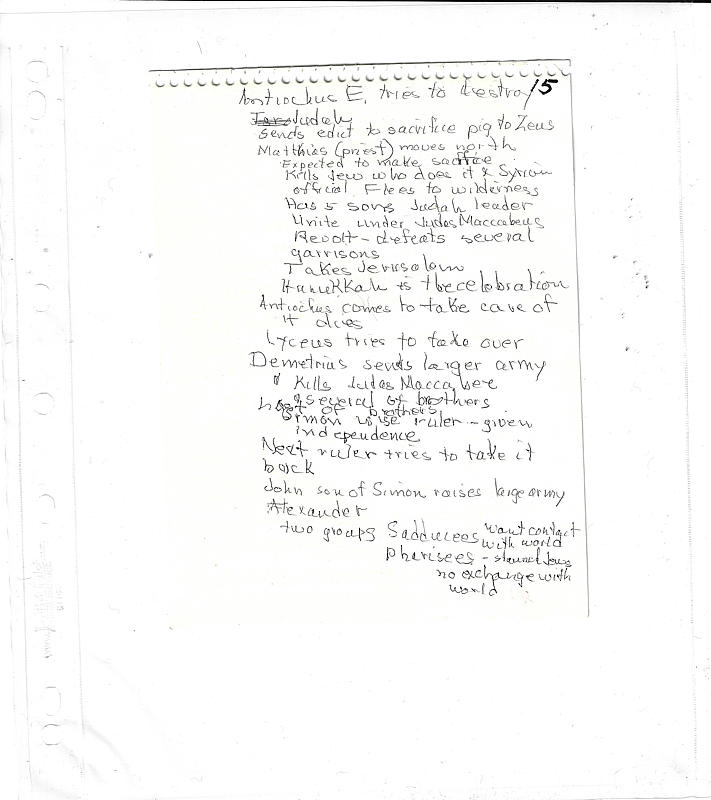 Antiochus E. tries to destroy 15
Judah
sends edict to sacrifice pig to Zeus
Matthias (priest) moves north
Expected to make sacffice
Kills Jew who does it & Syrian
official Flees to wilderness
Has 5 sons Judah leader
Unite under Judas Maccabeus
Revolt - defeats several
garrisons
Takes Jerusalem
Hanukkah is the celebration
Antiochus comes to take care of
it dies
Lyceus tries to take over
Demetrius sends larger army
Kills Judas Maccabee
& several of brothers
Last of brothers
Simon wise ruler - given
independence
Next ruler tries to take it
back
John son of Simon raises large army
Alexander
two groups Sadducees want contact
with world
Pharisees - staunch Jews
no exchange with
world